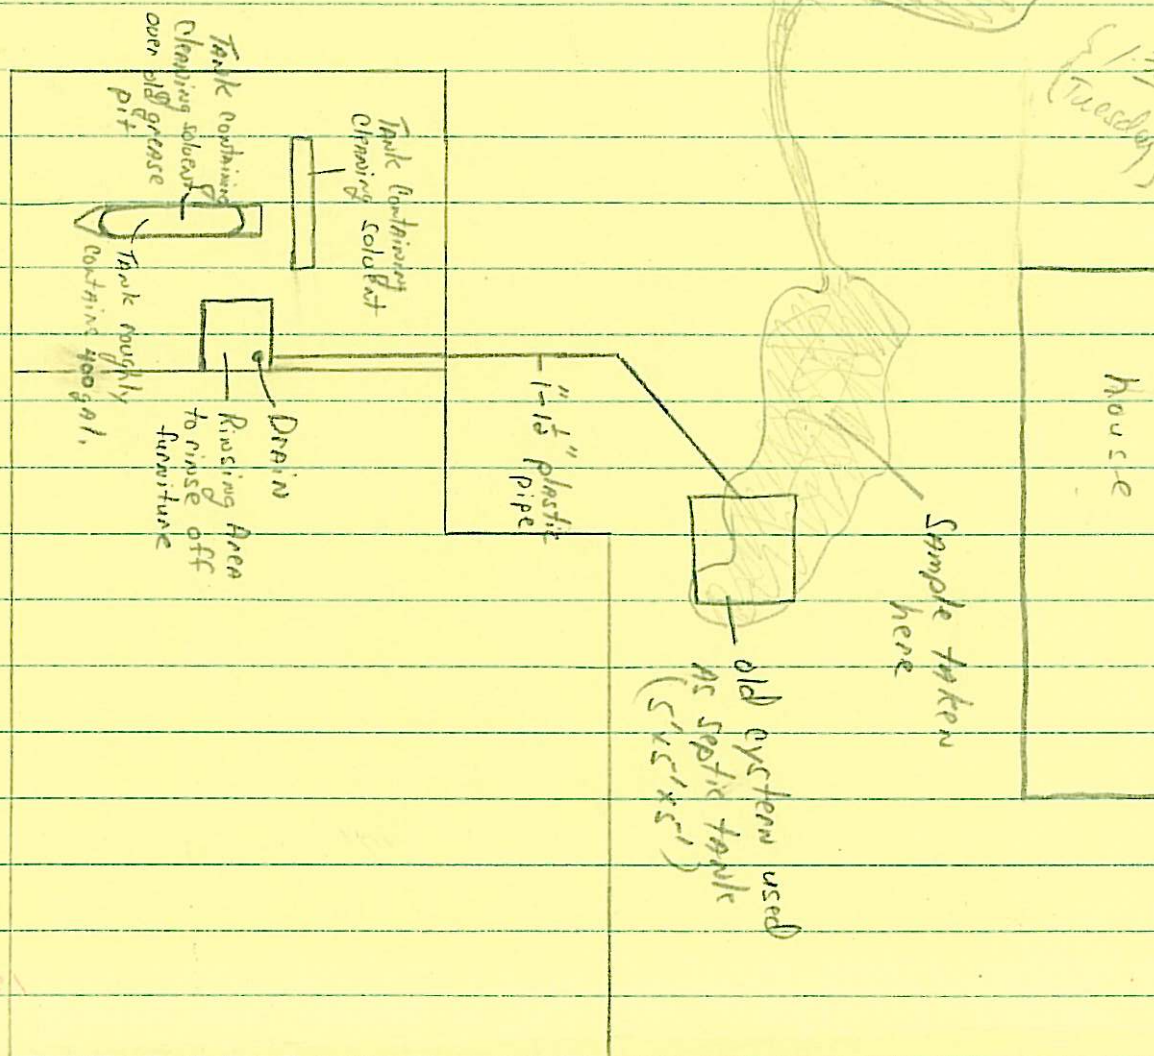 (Tuesday)
house
Sample taken
here
old cystern used
as septic tank
(5'x5'x5')
1-1½" plastic
pipe
Tank containing
cleaning solvent
Drain
Rinsing Area
to rinse off
furniture
Tank containing
cleaning solvent
over old grease
pit
Tank roughly
contains 400 gal.